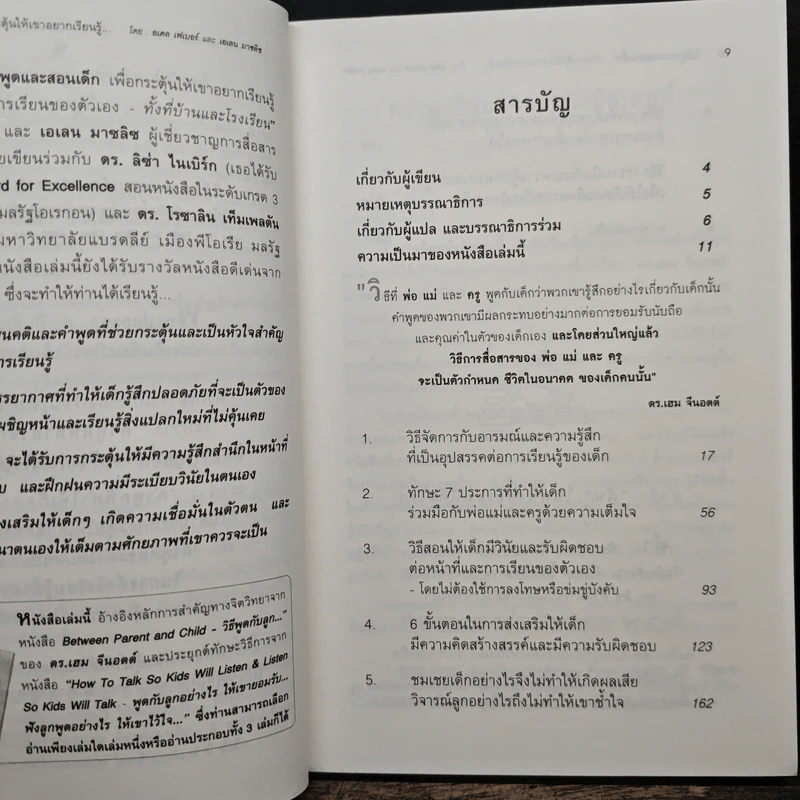 ตุ้นให้เขาอยากเรียนรู้... โดย : อเดล เฟเบอร์ และ เอเลน มาซลิช
พูดและสอนเด็ก เพื่อกระตุ้นให้เขาอยากเรียนรู้
การเรียนของตัวเอง - ทั้งที่บ้านและโรงเรียน"
และ เอเลน มาซลิช ผู้เชี่ยวชาญการสื่อสาร
ยเขียนร่วมกับ ดร. ลิซ่า ไนเบิร์ก (เธอได้รับ
rd for Excellence สอนหนังสือในระดับเกรด 3
มลรัฐโอเรกอน) และ ดร. โรซาลิน เท็มเพลตัน
มหาวิทยาลัยแบรดลีย์ เมืองพีโอเรีย มลรัฐ
หนังสือเล่มนี้ยังได้รับรางวัลหนังสือดีเด่นจาก
ซึ่งจะทำให้ท่านได้เรียนรู้...
นคติและคำพูดที่ช่วยกระตุ้นและเป็นหัวใจสำคัญ
ารเรียนรู้
รรยากาศที่ทำให้เด็กรู้สึกปลอดภัยที่จะเป็นตัวของ
ผชิญหน้าและเรียนรู้สิ่งแปลกใหม่ที่ไม่คุ้นเคย
จะได้รับการกระตุ้นให้มีความรู้สึกสำนึกในหน้าที่
บ และฝึกฝนความมีระเบียบวินัยในตนเอง
งเสริมให้เด็กๆ เกิดความเชื่อมั่นในตัวตน และ
นาตนเองให้เต็มตามศักยภาพที่เขาควรจะเป็น
หนังสือเล่มนี้ อ้างอิงหลักการสำคัญทางจิตวิทยาจาก
หนังสือ Between Parent and Child - วิธีพูดกับลูก..."
ของ ดร.เฮม จีนอตต์ และประยุกต์ทักษะวิธีการจาก
หนังสือ "How To Talk So Kids Will Listen & Listen
So Kids Will Talk - พูดกับลูกอย่างไร ให้เขายอมรับ...
ฟังลูกพูดอย่างไร ให้เขาไว้ใจ..." ซึ่งท่านสามารถเลือก
อ่านเพียงเล่มใดเล่มหนึ่งหรืออ่านประกอบทั้ง 3 เล่มก็ได้
9
สารบัญ
เกี่ยวกับผู้เขียน 4
หมายเหตุบรรณาธิการ 5
เกี่ยวกับผู้แปล และบรรณาธิการร่วม 6
ความเป็นมาของหนังสือเล่มนี้ 11
"วิธีที่ พ่อ แม่ และ ครู พูดกับเด็กว่าพวกเขารู้สึกอย่างไรเกี่ยวกับเด็กนั้น
คำพูดของพวกเขามีผลกระทบอย่างมากต่อการยอมรับนับถือ
และคุณค่าในตัวของเด็กเอง และโดยส่วนใหญ่แล้ว
วิธีการสื่อสารของ พ่อ แม่ และ ครู
จะเป็นตัวกำหนด ชีวิตในอนาคต ของเด็กคนนั้น"
ดร.เฮม จีนอตต์
1. วิธีจัดการกับอารมณ์และความรู้สึก
ที่เป็นอุปสรรคต่อการเรียนรู้ของเด็ก 17
2. ทักษะ 7 ประการที่ทำให้เด็ก
ร่วมมือกับพ่อแม่และครูด้วยความเต็มใจ 56
3. วิธีสอนให้เด็กมีวินัยและรับผิดชอบ
ต่อหน้าที่และการเรียนของตัวเอง
- โดยไม่ต้องใช้การลงโทษหรือข่มขู่บังคับ 93
4. 6 ขั้นตอนในการส่งเสริมให้เด็ก
มีความคิดสร้างสรรค์และมีความรับผิดชอบ 123
5. ชมเชยเด็กอย่างไรจึงไม่ทำให้เกิดผลเสีย
วิจารณ์ลูกอย่างไรถึงไม่ทำให้เขาช้ำใจ 162